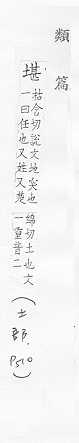 類篇
堪 枯含切說文地突也
一曰任也又姓又楚
錦切土也文
一重音二
(土部, P510)